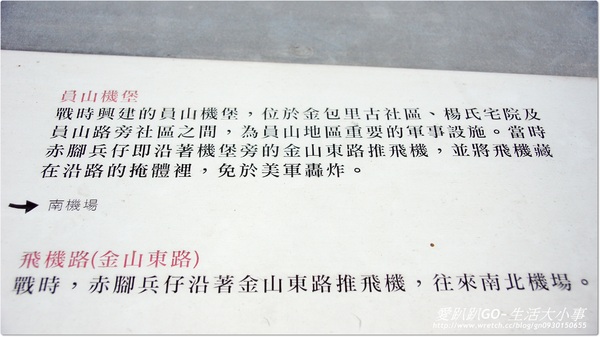 員山機堡
戰時興建的員山機堡，位於金包里古社區、楊氏宅院及
員山路旁社區之間，為員山地區重要的軍事設施。當時
赤腳兵仔即沿著機堡旁的金山東路推飛機，並將飛機藏
在沿路的掩體裡，免於美軍轟炸。
南機場
飛機路(金山東路)
戰時，赤腳兵仔沿著金山東路推飛機，往來南北機場。
愛趴趴GO-生活大小事
http://www.wretch.cc/blog/gn0930150655